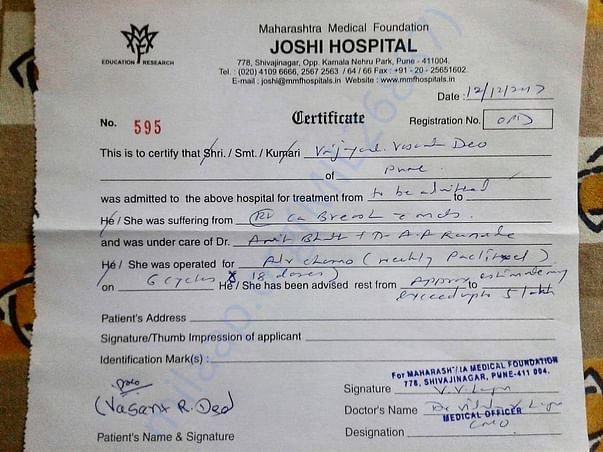 Maharashtra Medical Foundation
JOSHI HOSPITAL
EDUCATION RESEARCH
778, Shivajinagar, Opp. Kamala Nehru Park, Pune - 411004.
Tel. : (020) 4109 6666, 2567 2563 / 64 / 66 Fax : +91 - 20 - 25651602.
E-mail : joshi@mmfhospitals.in Website : www.mmfhospitals.in
Date : 12/12/2017
No. 595 Certificate Registration No. OPD
This is to certify that Shri. / Smt. / Kumari Vasant Deo
of Pune
was admitted to the above hospital for treatment from to be admitted to
He / She was suffering from Ca Breast c mets.
and was under care of Dr. Amit Bhatt + Dr A.P Ranade
He / She was operated for Adv chemo (weekly )
on 6 cycles 18 doses) He / She has been advised rest from Approx to estimate may
exceed upto 5 lakh
Patient's Address
Signature/Thumb Impression of applicant
Identification Mark(s) :
For MAHARASHTRA MEDICAL FOUNDATION
778, SHIVAJINAGAR, PUNE-411 004.
Signature
(Vasant R. Deo)
Doctor's Name Dr.
MEDICAL OFFICER
Patient's Name & Signature
Designation CMO